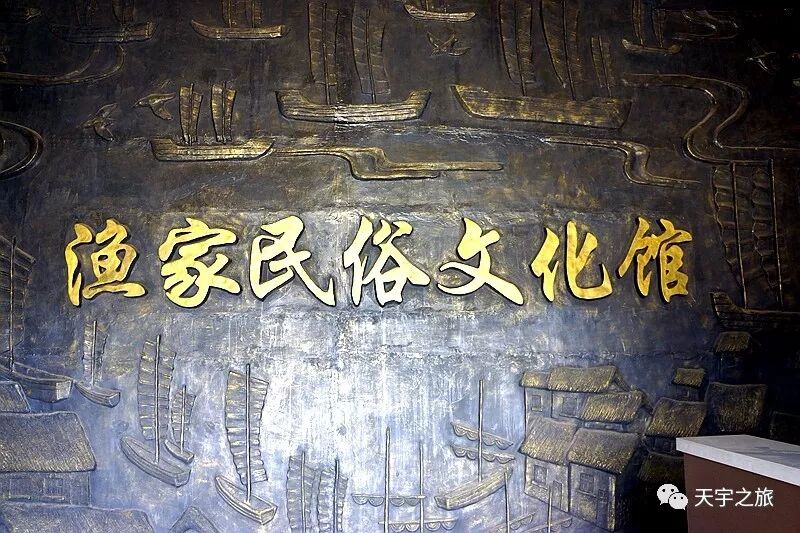 渔家民俗文化馆
天宇之旅